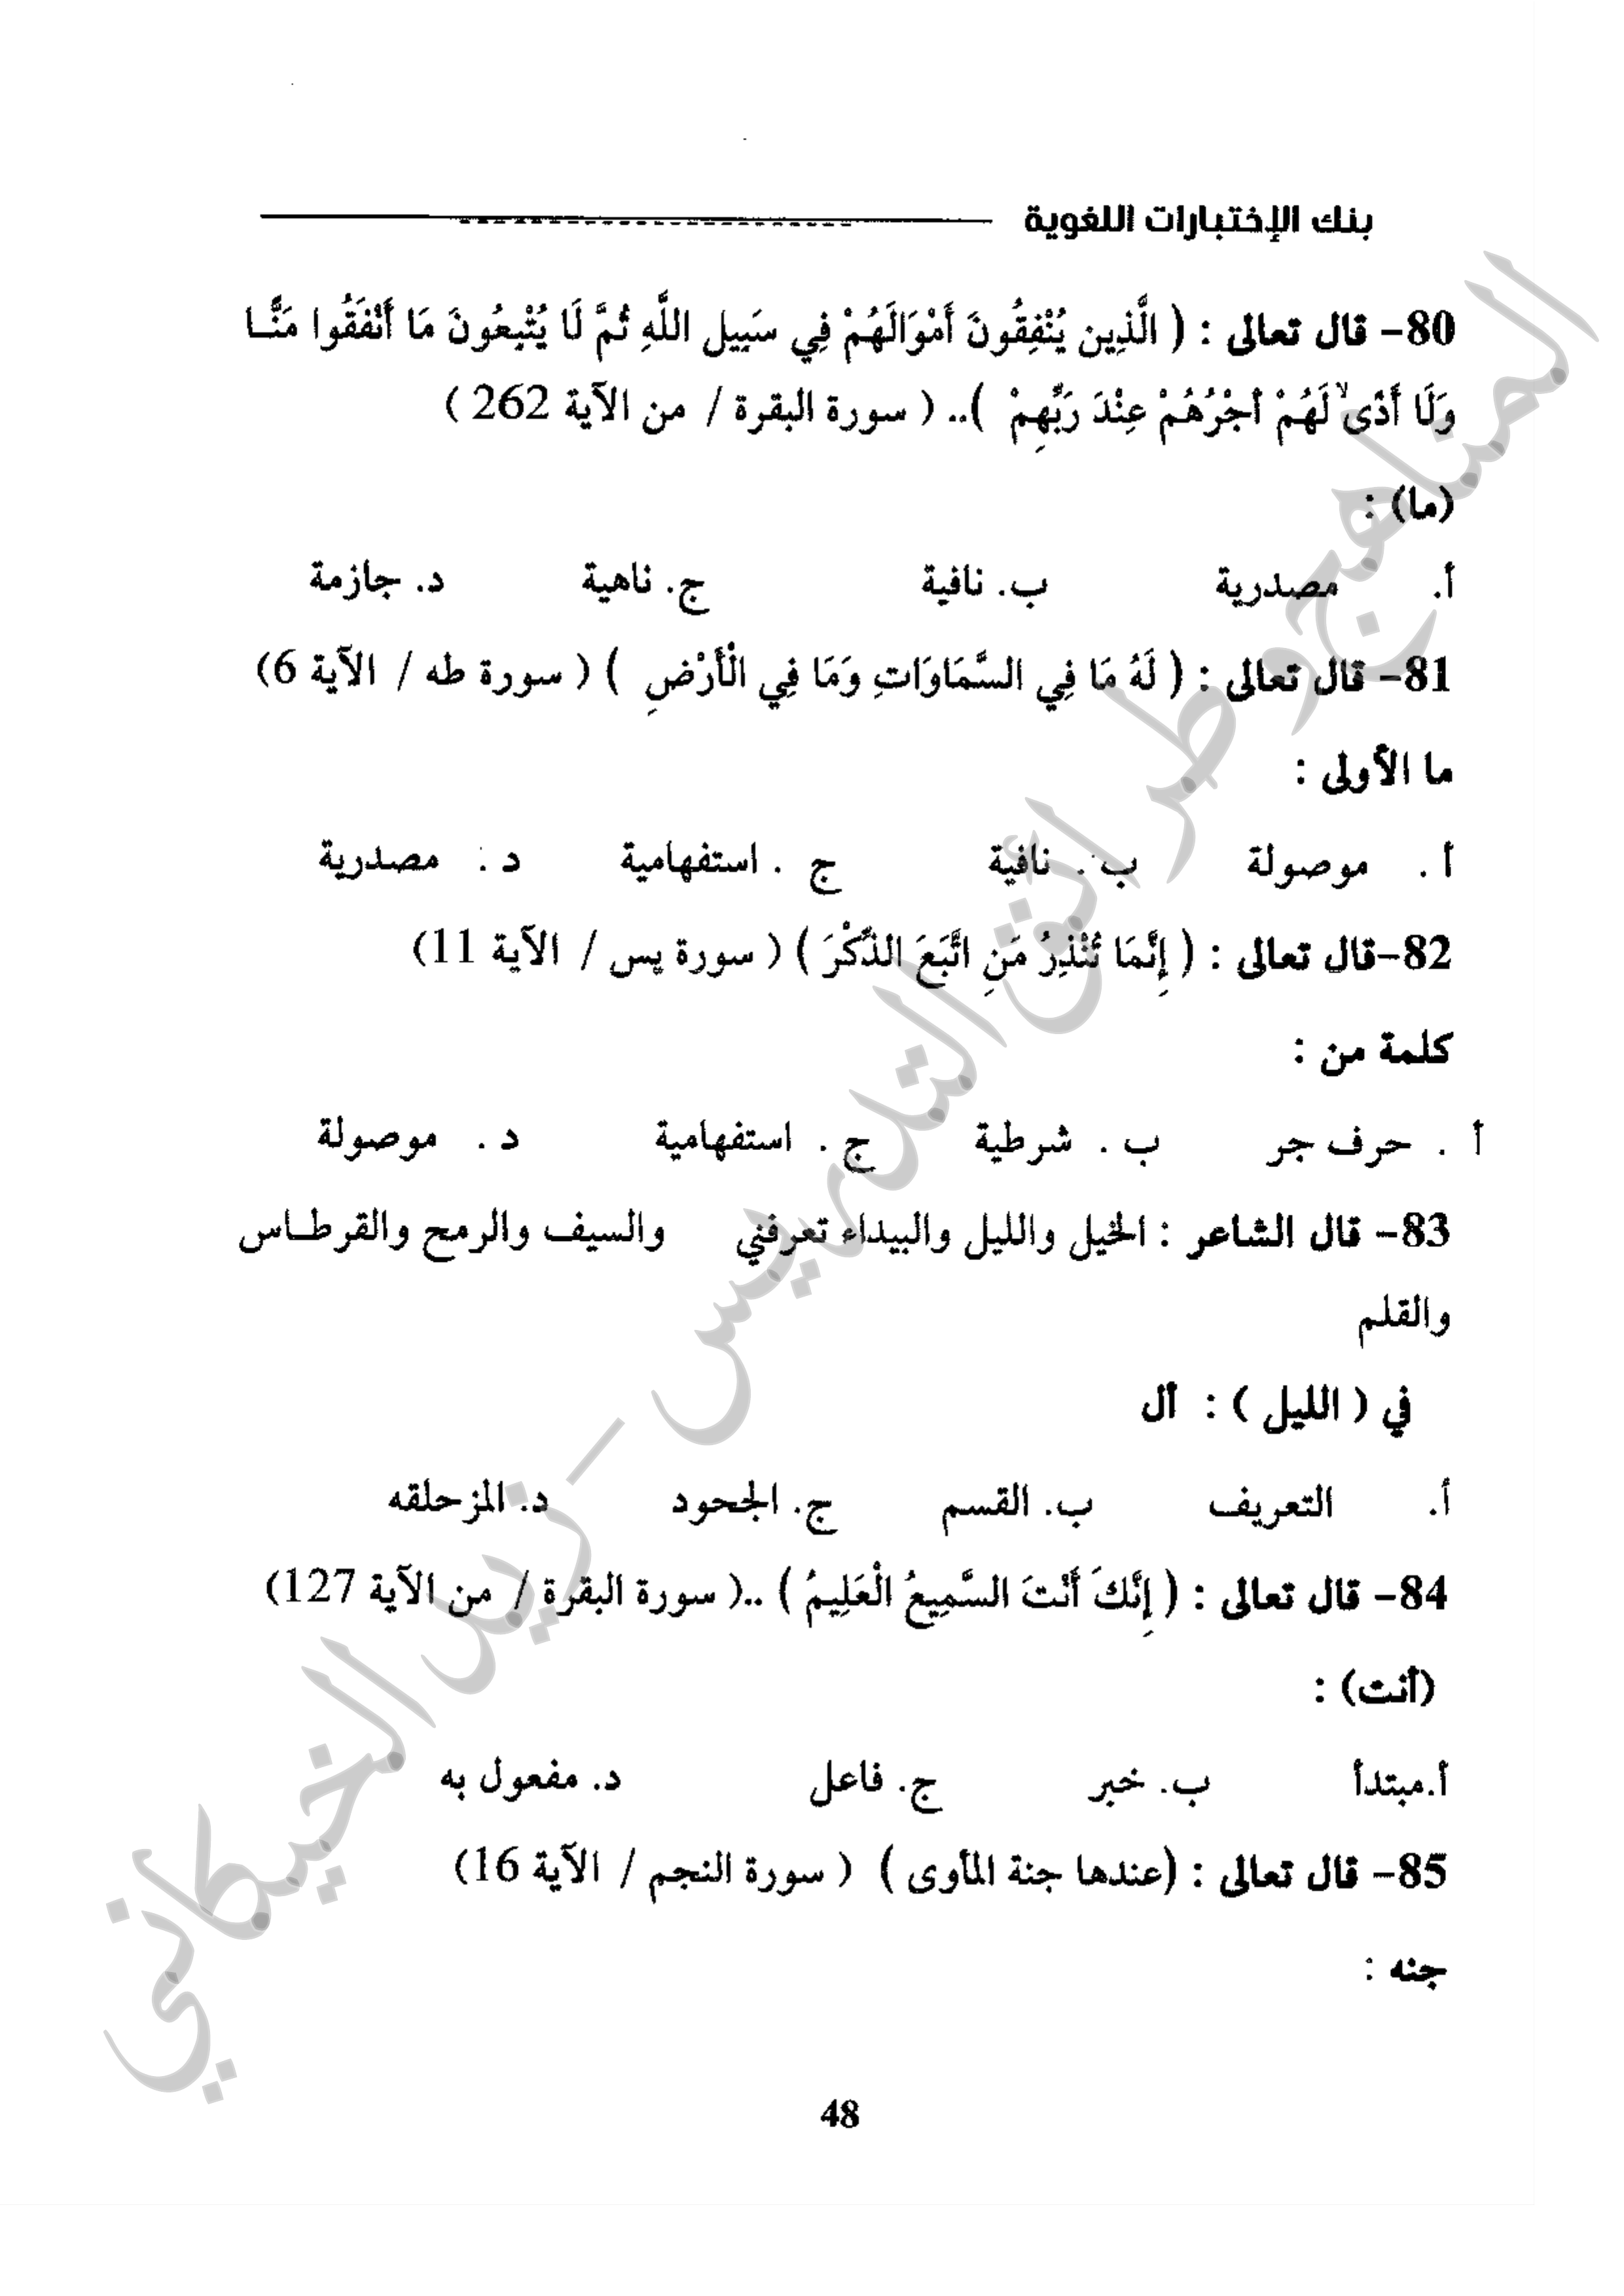 بنك الإختبارات اللغوية
80- قال تعالى : ( الَّذِين يُنْفِقُونَ أَمْوَالَهُمْ فِي سَبِيل اللَّهِ ثُمَّ لَا يُتْبِعُونَ مَا أَنْفَقُوا مَنًّــا
وَلَا أَذًى ۙ لَهُمْ أَجْرُهُمْ عِنْدَ رَبِّهِمْ ).. ( سورة البقرة / من الآية 262 )
(ما) :
أ. مصدرية ب. نافية ج. ناهية د. جازمة
81- قال تعالى : ( لَهُ مَا فِي السَّمَاوَاتِ وَمَا فِي الْأَرْضِ ) ( سورة طه / الآية 6)
ما الأولى :
أ . موصولة ب . نافية ج . استفهامية د . مصدرية
82-قال تعالى : ( إِنَّمَا تُنْذِرُ مَنِ اتَّبَعَ الذِّكْرَ ) ( سورة يس / الآية 11)
كلمة من :
أ . حرف جر ب . شرطية ج . استفهامية د . موصولة
83- قال الشاعر : الخيل والليل والبيداء تعرفني والسيف والرمح والقرطـاس
والقلم
في ( الليل ) : أل
أ. التعريف ب. القسم ج. الجحود د. المزحلقه
84- قال تعالى : ( إِنَّكَ أَنْتَ السَّمِيعُ الْعَلِيمُ ) ..( سورة البقرة / من الآية 127)
(أنت) :
أ.مبتدأ ب. خبر ج. فاعل د. مفعول به
85- قال تعالى : (عندها جنة المأوى ) ( سورة النجم / الآية 16)
جنه :
48
المناهج وطرائق التدريس - زيد الخيكاني